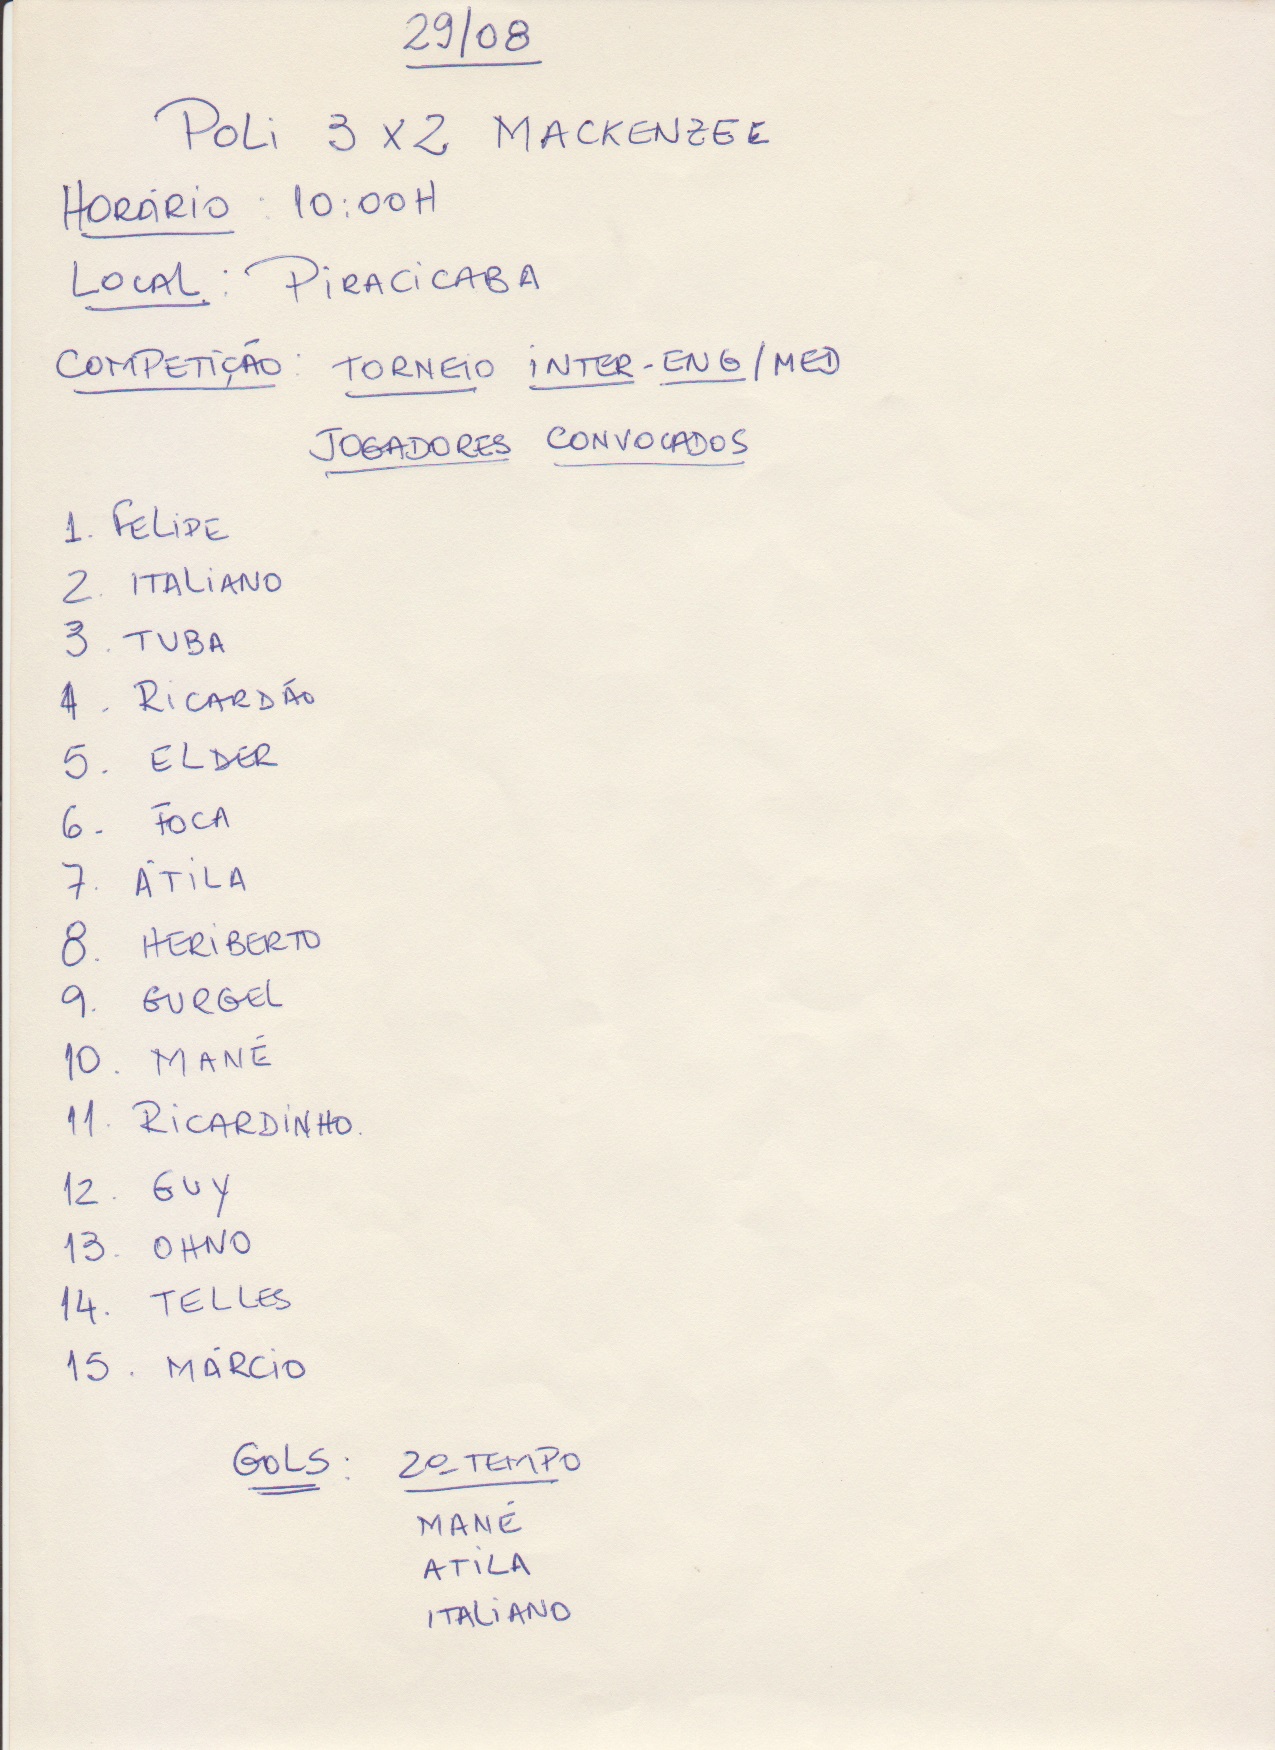 29/08
POLI 3 X 2 MACKENZEE
HORÁRIO : 10:00H
LOCAL : PIRACICABA
COMPETIÇÃO : TORNEIO INTER-ENG/MED
JOGADORES CONVOCADOS
1. FELIPE
2. ITALIANO
3. TUBA
4. RICARDÃO
5. ELDER
6. FOCA
7. ÁTILA
8. HERIBERTO
9. GURGEL
10. MANÉ
11. RICARDINHO.
12. GUY
13. OHNO
14. TELLES
15. MÁRCIO
GOLS : 2º TEMPO
MANÉ
ATILA
ITALIANO